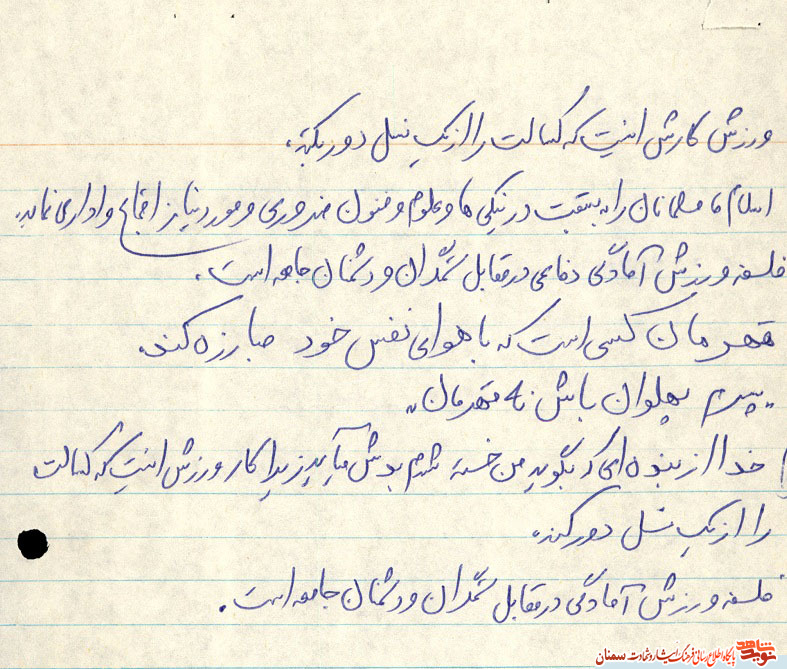 ورزش کارش اینست که کسالت را از یک نسل دور بکند،
اسلام ما مسلمانان را به سبقت در نیکی ها و علوم و فنون ضروری و مورد نیاز اجتماع وادار می نماید.
فلسفه ورزش آمادگی دفاعی در مقابل ستمگران و دشمنان جامعه است.
قهرمان کسی است که با هوای نفس خود مبارزه کند.
پسرم پهلوان باش نه قهرمان
خدا از بنده ای که بگوید من خسته شدم بدش میآید زیرا کار ورزش اینست که کسالت
را از یک نسل دور کند.
فلسفه ورزش آمادگی در مقابل ستمگران و دشمنان جامعه است.
نوید شاهد پایگاه اطلاع رسانی فرهنگ ایثار و شهادت سمنان